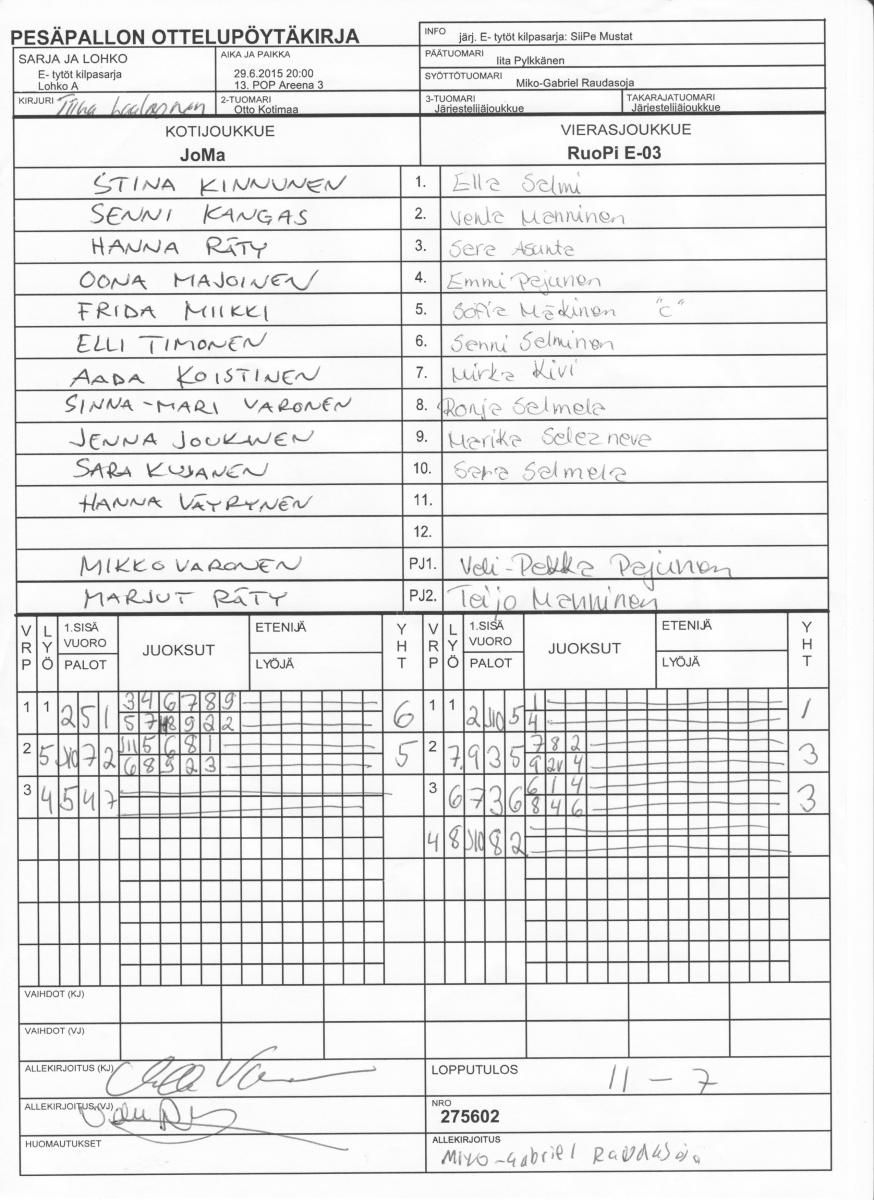 PESÄPALLON OTTELUPÖYTÄKIRJA
INFO järj. E- tytöt kilpasarja: SiiPe Mustat
PÄÄTUOMARI
Iita Pylkkänen
SARJA JA LOHKO
E- tytöt kilpasarja
Lohko A
AIKA JA PAIKKA
29.6.2015 20:00
13. POP Areena 3
SYÖTTÖTUOMARI
Miko-Gabriel Raudasoja
KIRJURI Tiina
2-TUOMARI
Otto Kotimaa
3-TUOMARI
Järjestelijäjoukkue
TAKARAJATUOMARI
Järjestelijäjoukkue
KOTIJOUKKUE
JoMa
VIERASJOUKKUE
RuoPi E-03
STINA KINNUNEN 1. Ella Salmi
SENNI KANGAS 2. Venla Manninen
HANNA RÄTY 3. Sara Asunta
OONA MAJOINEN 4. Emmi Pajunen
FRIDA MIIKKI 5. Sofia Mäkinen "C"
ELLI TIMONEN 6. Senni Salminen
AADA KOISTINEN 7. Mirka Kivi
SINNA-MARI VARONEN 8. Ronja Salmela
JENNA JOUKAINEN 9. Marika Selezneva
SARA KUJANEN 10. Sara Salmela
HANNA VÄYRYNEN 11.
12.
MIKKO VARONEN PJ1. Veli-Pekka Pajunen
MARJUT RÄTY PJ2. Teijo Manninen
VRP LYÖ 1.SISÄ VUORO PALOT JUOKSUT ETENIJÄ LYÖJÄ YHT VRP LYÖ 1.SISÄ VUORO PALOT JUOKSUT ETENIJÄ LYÖJÄ YHT
3 4 6 7 8 9 1
1 1 2 5 1 6 1 1 2 J10 5 1
5 7 8 9 2 2 4
J11 5 6 8 1 7 8 2
2 5 J10 7 2 5 2 7 9 3 5 3
6 8 9 2 3 9 2v 4
3 4 5 4 7 6 1 4
3 6 7 3 6 3
8 4 6
4 8 J10 8 2
VAIHDOT (KJ)
VAIHDOT (VJ)
ALLEKIRJOITUS (KJ)
LOPPUTULOS 11 - 7
ALLEKIRJOITUS (VJ)
NRO
275602
HUOMAUTUKSET
ALLEKIRJOITUS
Miko-Gabriel Raudasoja